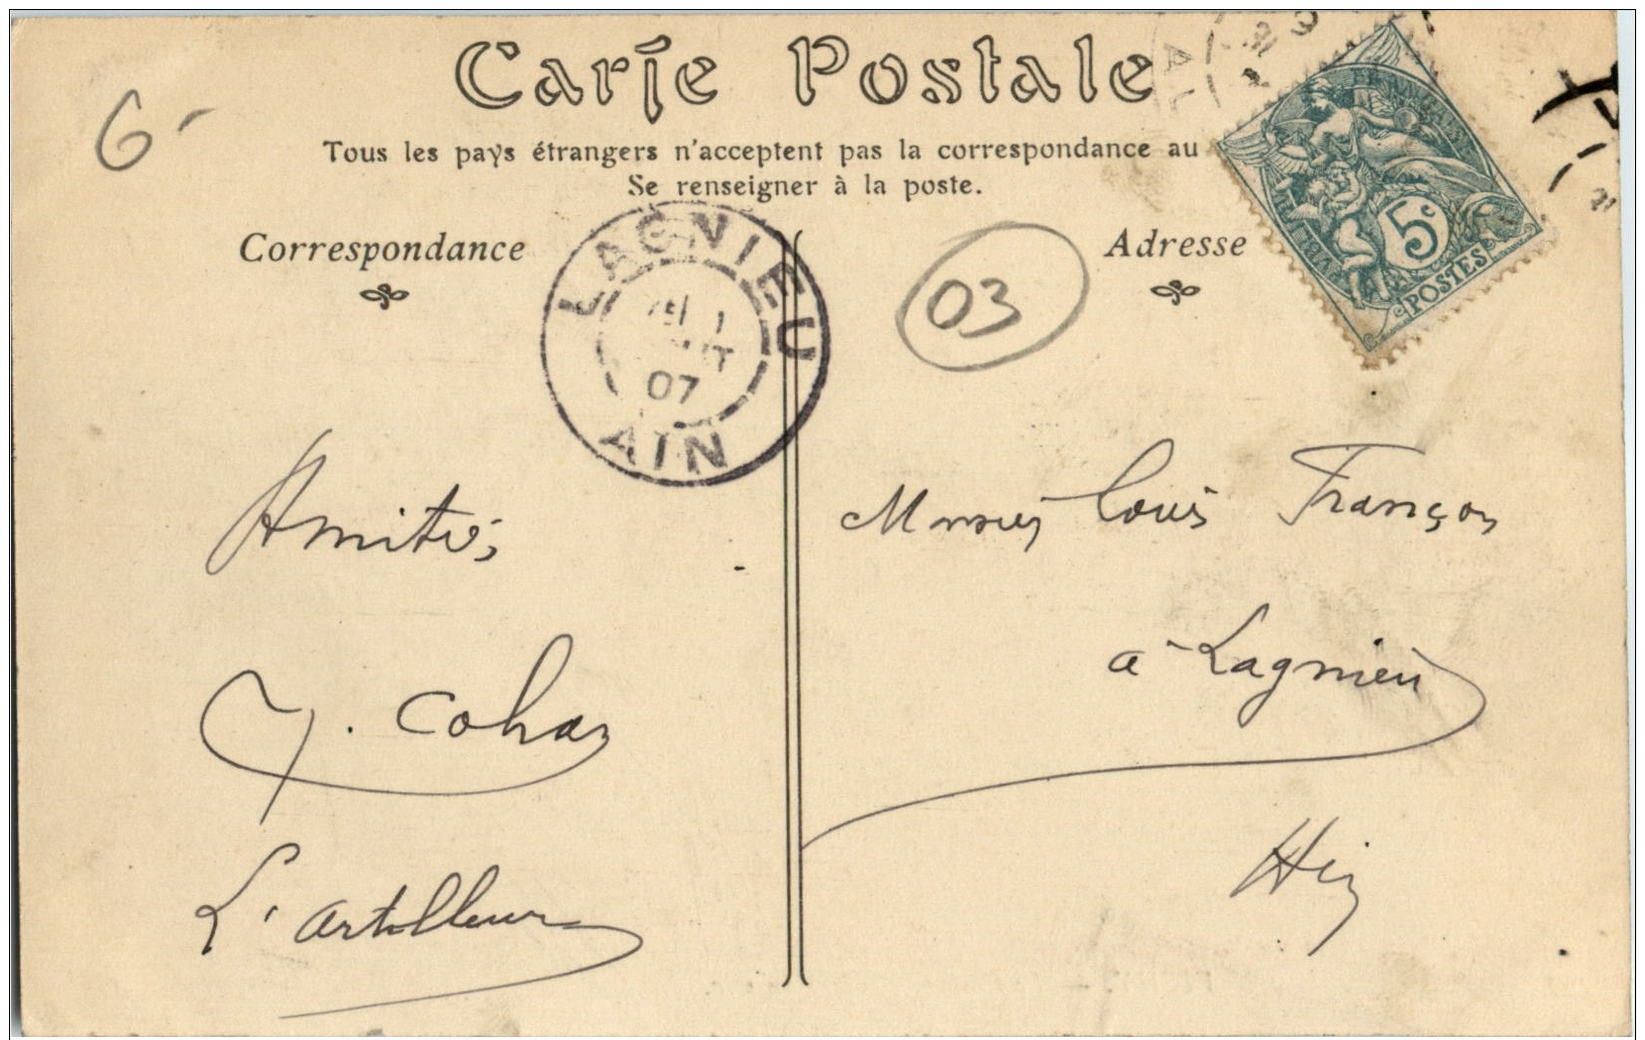 Carte Postale
6-
Tous les pays étrangers n'acceptent pas la correspondance au
Se renseigner à la poste.
Correspondance
Adresse
LAGNIEU
07
AIN
03
5c
POSTES
Amitiés
Louis François
à Lagnieu
Y. Cohas
L'artilleur
Ain